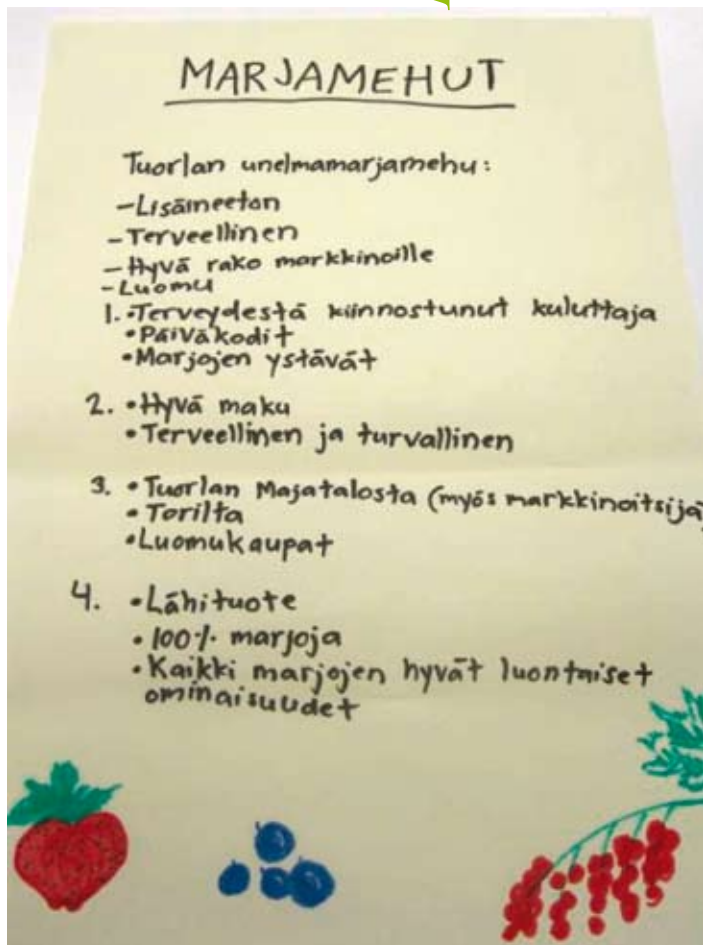 MARJAMEHUT
Tuorlan unelmamarjamehu:
-Lisäineeton
-Terveellinen
-Hyvä rako markkinoille
-Luomu
1. •Terveydestä kiinnostunut kuluttaja
•Päiväkodit
•Marjojen ystävät
2. •Hyvä maku
•Terveellinen ja turvallinen
3. •Tuorlan Majatalosta (myös markkinoitsija)
•Torilta
•Luomukaupat
4. •Lähituote
•100% marjoja
•Kaikki marjojen hyvät luontaiset
ominaisuudet